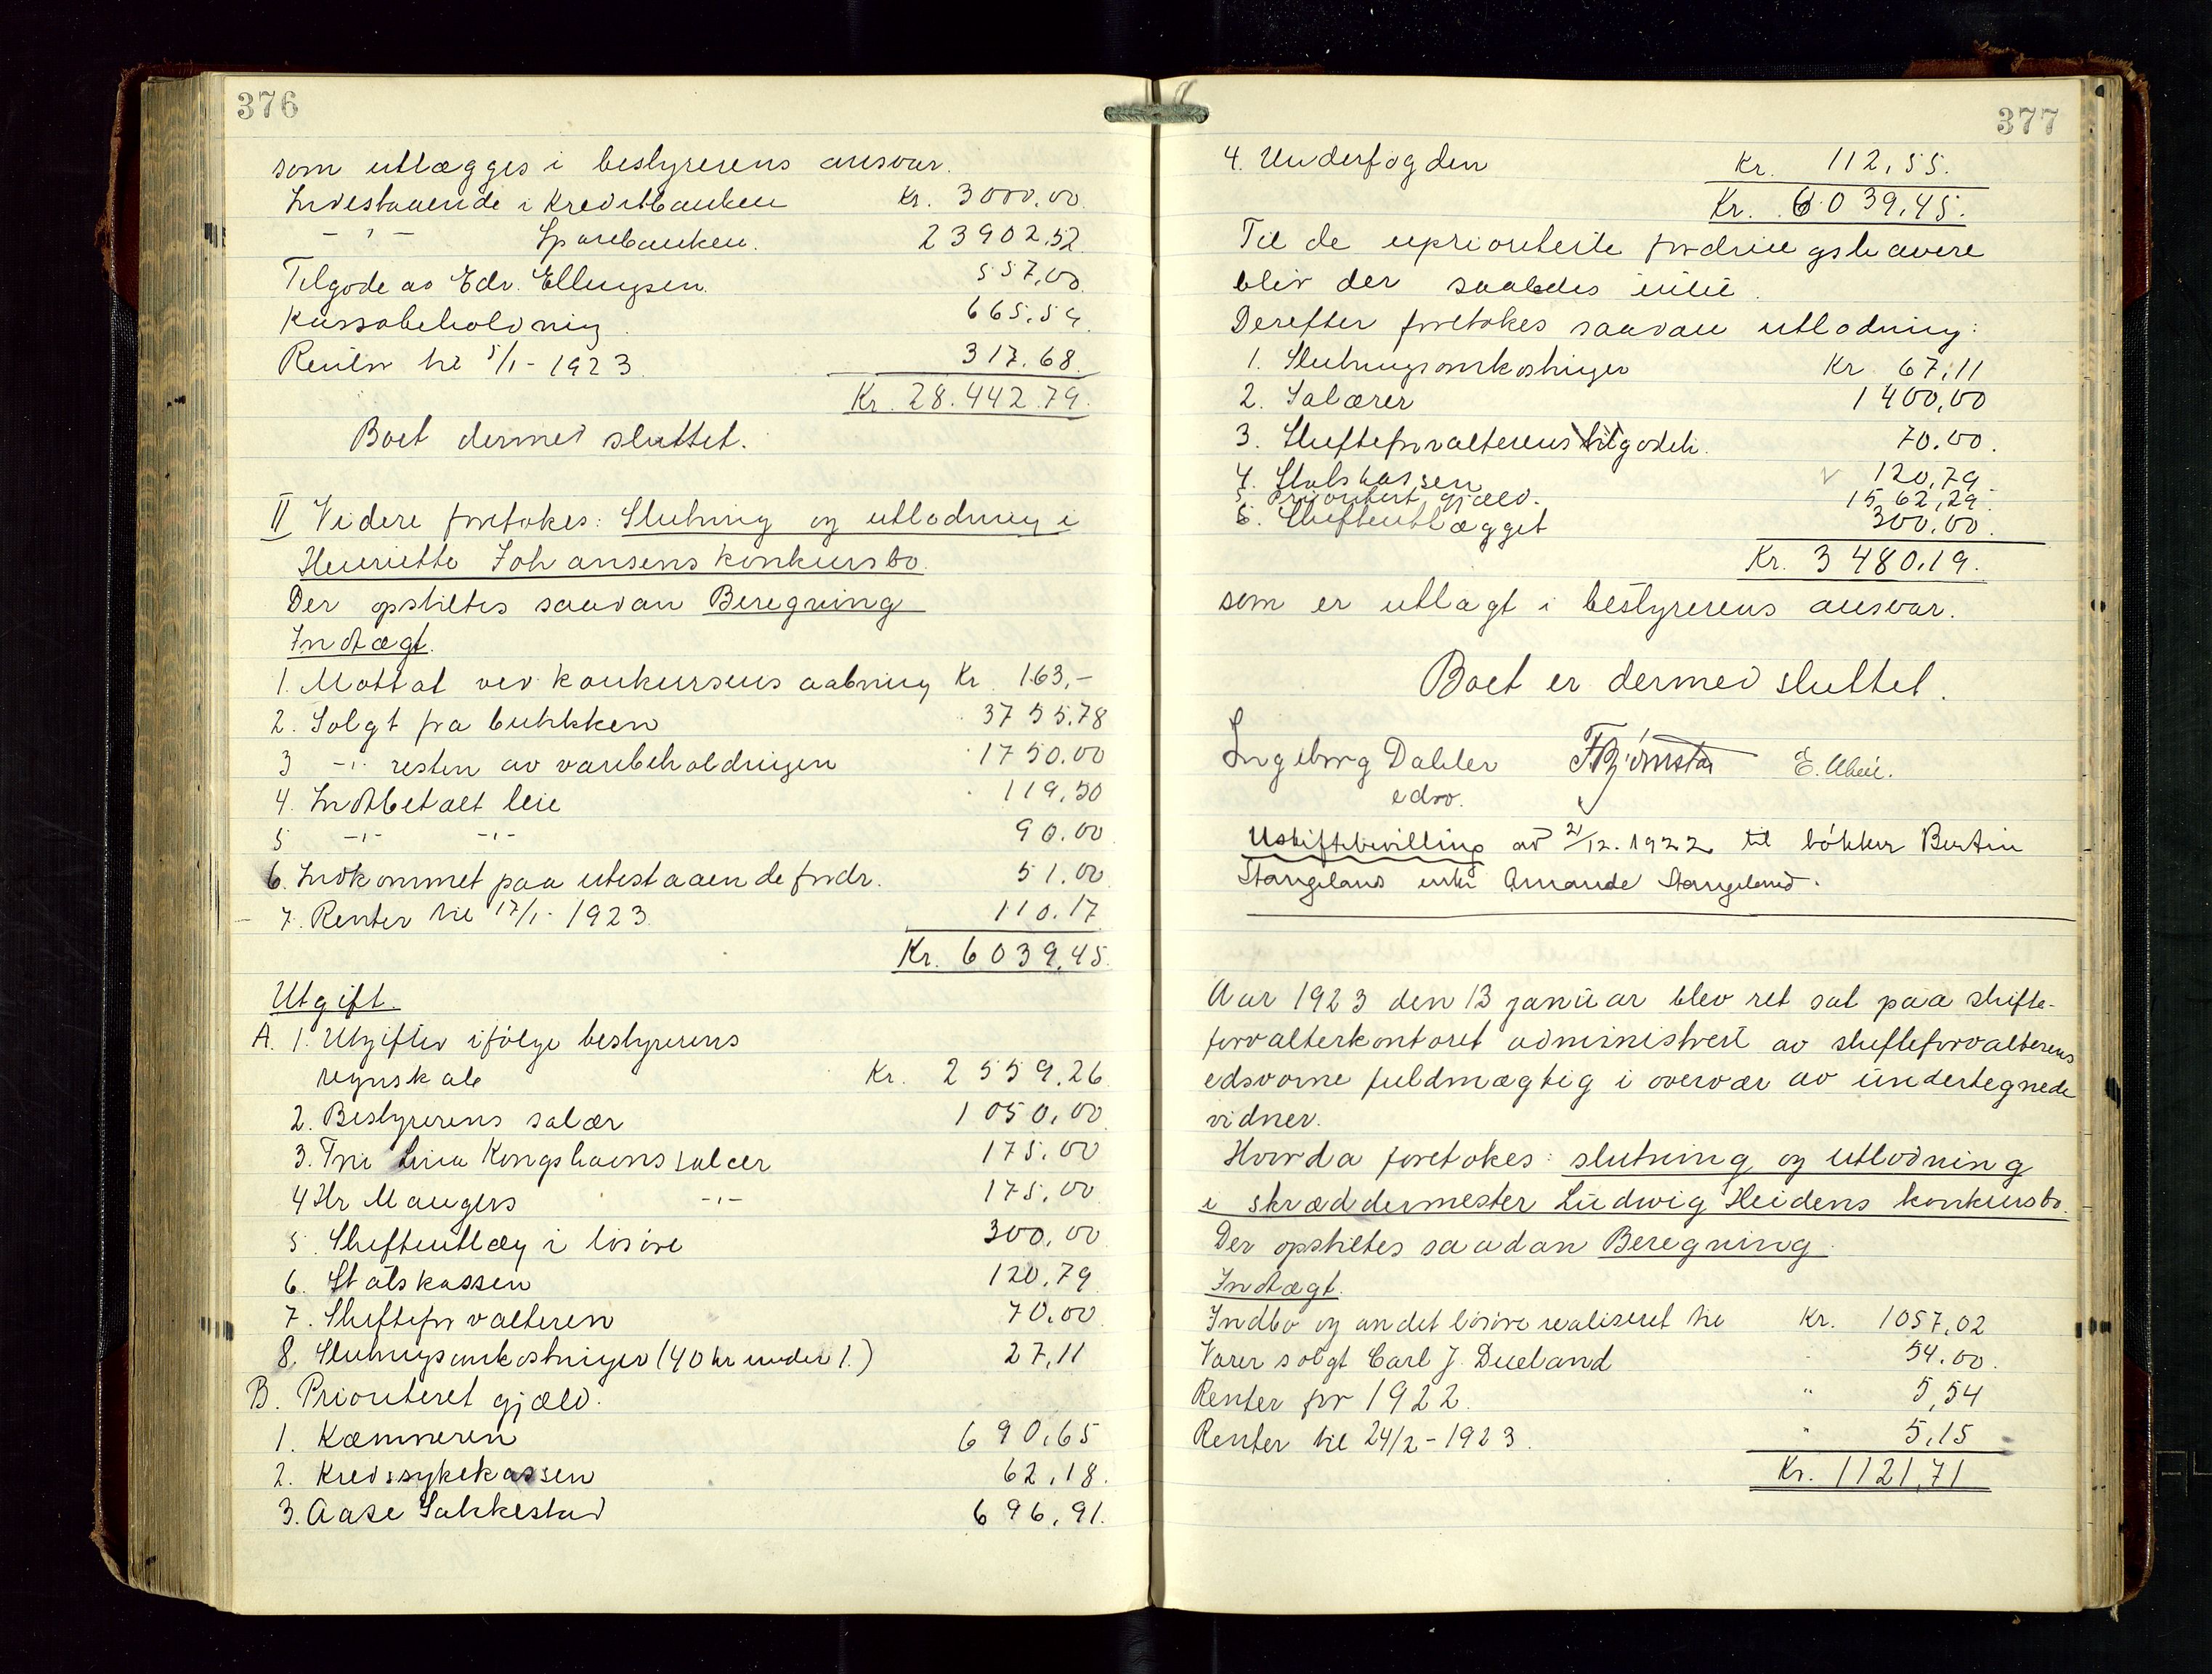 376
som utlægges i bestyrerens ansvar.
Indestaaende i Kreditbanken Kr. 3000.00
- " - Sparebanken. 23902.52
Tilgode av Edv. Ellingsen. 557,00
Kassabeholdning. 665.54
Renter til 5/1 - 1923 317.68
Kr. 28.442.79
Boet dermed sluttet.
II Videre foretokes: Slutning og utlodning i
Henriette Johansens konkursbo.
Der opstilles saadan Beregning
Indtægt.
1. Mottat ved konkursens aabning Kr. 163,-
2. Solgt fra butikken 3755.78
3 -"- resten av varebeholdningen 1750.00
4. Indbetalt leie 119,50
5 -"- -"- 90.00
6. Indkommet paa utestaaende fordr. 51.00
7. Renter til 17/1 - 1923. 110.17
Kr. 6039,45
Utgift.
A. 1. Utgifter ifølge bestyrerens
regnskab Kr. 2559,26
2. Bestyrerens salær 1050,00
3. Frk Lina Kongshavns salær 175.00
4 Hr Maugers -"- 175.00
5. Skifteutlæg i løsøre 300,00
6. Statskassen 120,79
7. Skifteforvalteren 70.00
8. Slutningsomkostninger (40 kr under 1.) 27,11
B. Prioriteret gjæld.
1. Kæmneren 690,65
2. Kredssykekassen 62,18.
3. Aase Sakkestad 696,91.
377
4. Underfogden Kr. 112,55.
Kr. 6039,45.
Til de uprioriterte fordringshavere
blir der saaledes intet.
Derefter foretokes saadan utlodning:
1. Slutningsomkostninger Kr 67,11
2. Salærer 1400,00
3. Skifteforvalterens tilgodeh. 70.00.
4. Statskassen 120,79
5. Prioritert gjæld. 1562,29
6. Skifteutlægget 300.00.
Kr. 3480.19.
som er utlagt i bestyrerens ansvar.
Boet er dermed sluttet.
Ingeborg Dahler
edsv.
Uskiftebevilling av 21/12. 1922 til bøkker Bertin
Stangelands enke Amande Stangeland.
Aar 1923 den 13 januar blev ret sat paa skifte-
forvalterkontoret administrert av skifteforvalterens
edsvorne fuldmægtig i overvær av undertegnede
vidner.
Hvorda foretokes: slutning og utlodning
i skræddermester Ludwig Heidens konkursbo.
Der opstilles saadan Beregning.
Indtægt.
Indbo og andet løsøre realiseret til Kr. 1057,02
Varer solgt Carl J. Dueland 54.00.
Renter for 1922. " 5,54
Renter til 24/2 - 1923. " 5,15
Kr. 1121,71